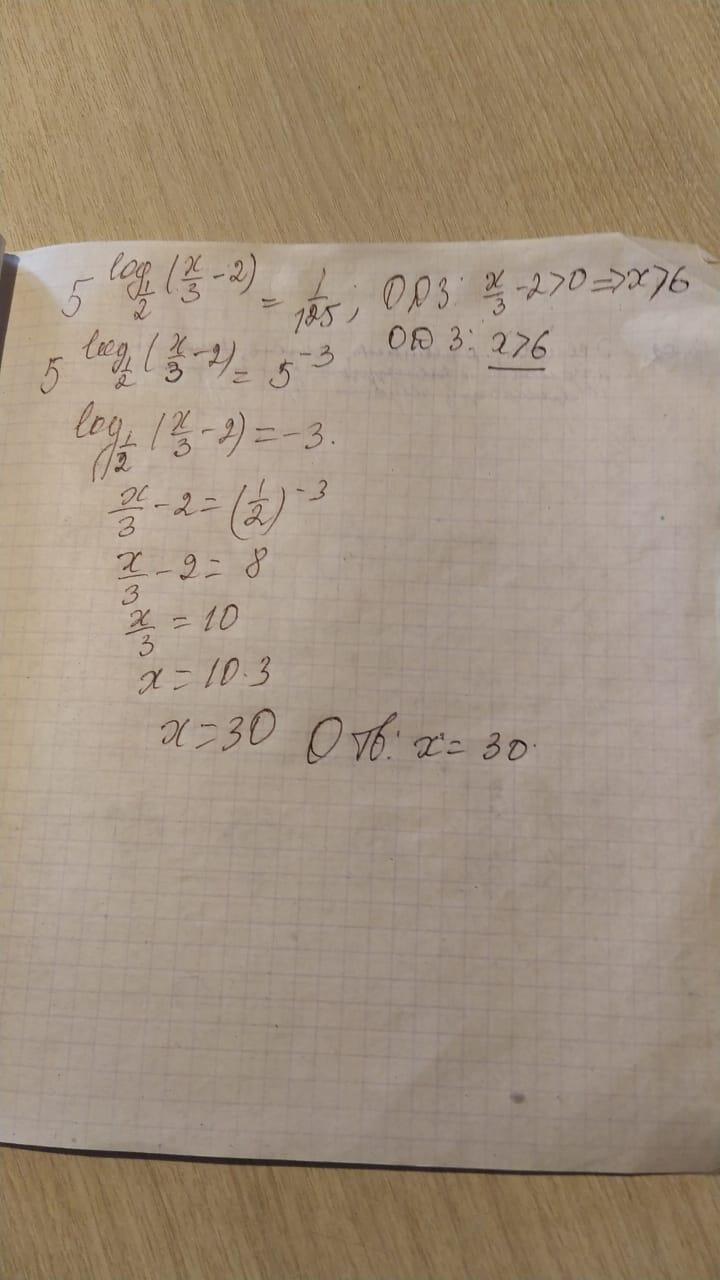 5^{log_{1/2}(x/3 - 2)} = 1/125; ОДЗ: x/3 - 2 > 0 => x > 6
5^{log_{1/2}(x/3 - 2)} = 5^{-3} ОДЗ: x > 6
log_{1/2}(x/3 - 2) = -3.
x/3 - 2 = (1/2)^{-3}
x/3 - 2 = 8
x/3 = 10
x = 10·3
x = 30 Отв: x = 30.